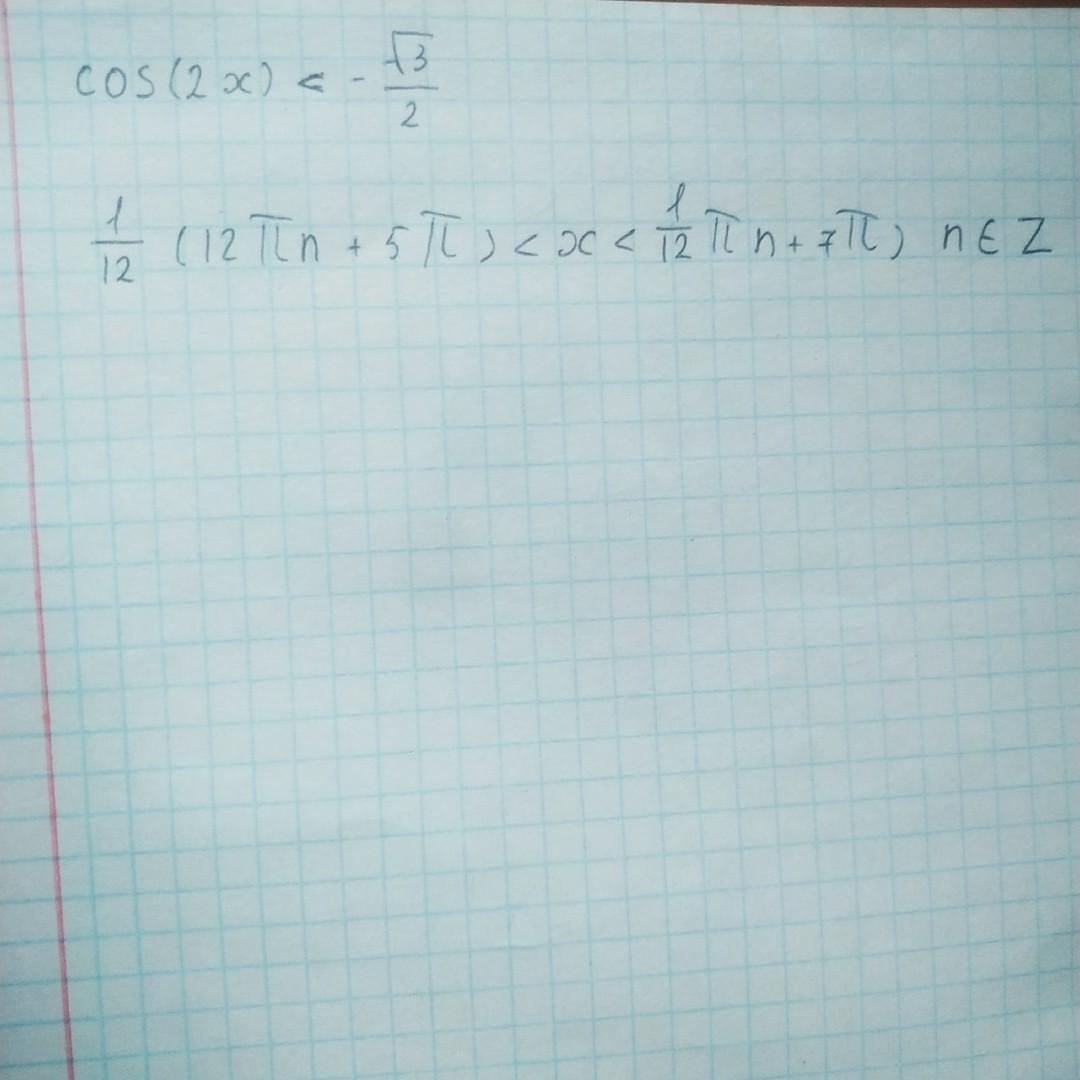 cos(2x) < - √3/2
1/12 (12πn + 5π) < x < 1/12 πn + 7π) n ∈ Z